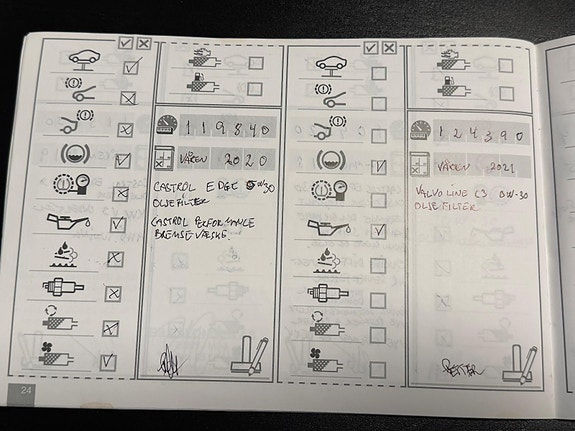 1 1 9 8 4 0
VÅREN 2020
CASTROL EDGE 5W-30
OLJEFILTER
CASTROL PERFORMANCE
BREMSEVÆSKE.
1 2 4 3 9 0
VÅREN 2021
VALVOLINE C3 0W-30
OLJEFILTER
24